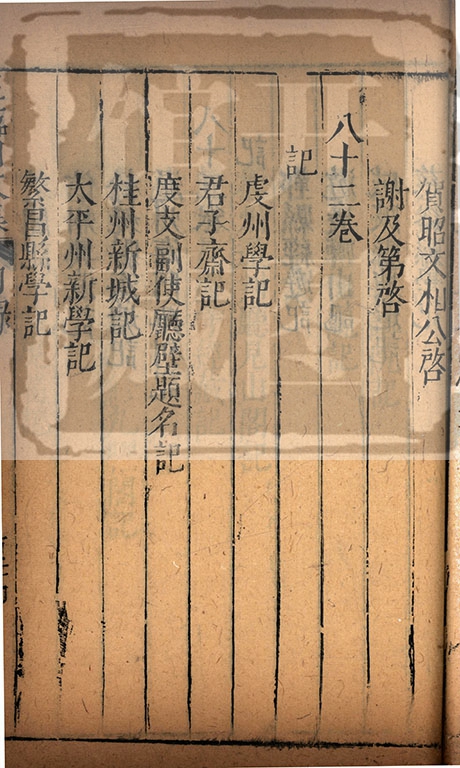 賀昭文相公啓
謝及第啓
八十二卷
記
虔州學記
君子齋記
度支副使廳壁題名記
桂州新城記
太平州新學記
繁昌縣學記